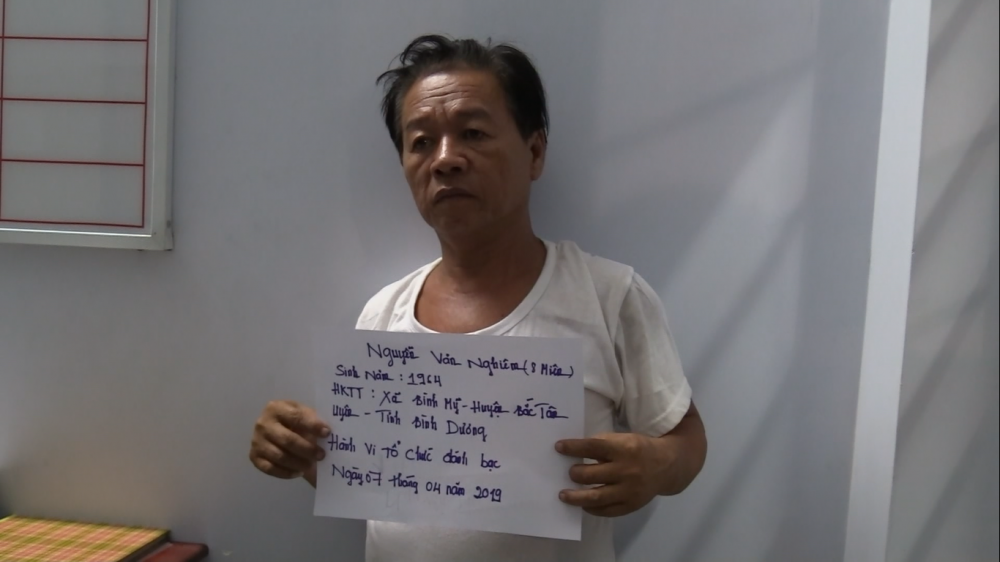 Nguyễn Văn Nghiêm (8 Miên)
Sinh Năm : 1964
HKTT : Xã Bình Mỹ - Huyện Bắc Tân
Uyên - Tỉnh Bình Dương
Hành Vi Tổ Chức đánh bạc
Ngày 07 tháng 04 năm 2019